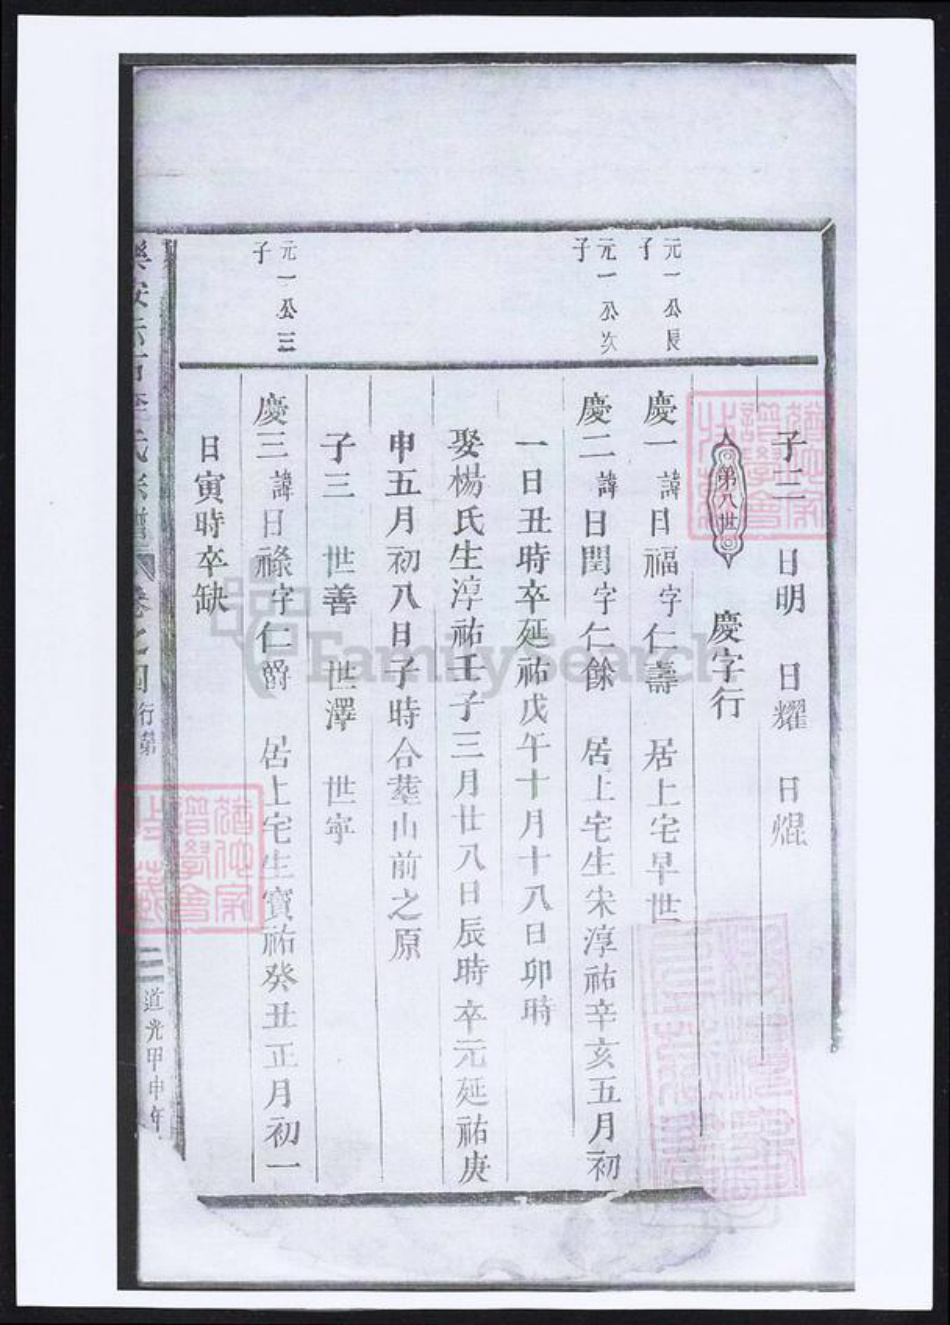 子三 日明 日耀 日焜
第八世 慶字行
元一公長子
慶一諱日福字仁壽 居上宅早世
元一公次子
慶二諱日閏字仁餘 居上宅生宋淳祐辛亥五月初
一日丑時卒延祐戊午十月十八日卯時
娶楊氏生淳祐壬子三月廿八日辰時卒元延祐庚
申五月初八日子時合塟山前之原
子三 世善 世澤 世寧
元一公三子
慶三諱日祿字仁爵 居上宅生寶祐癸丑正月初一
日寅時卒缺
卷之四 行第 二 道光甲申年
FamilySearch